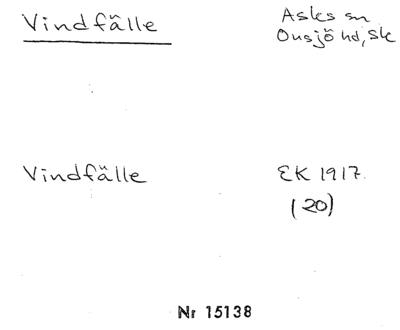 Vindfälle
Asks sn
Onsjö hd, Sk
Vindfälle
EK 1917.
(20)
Nr 15138